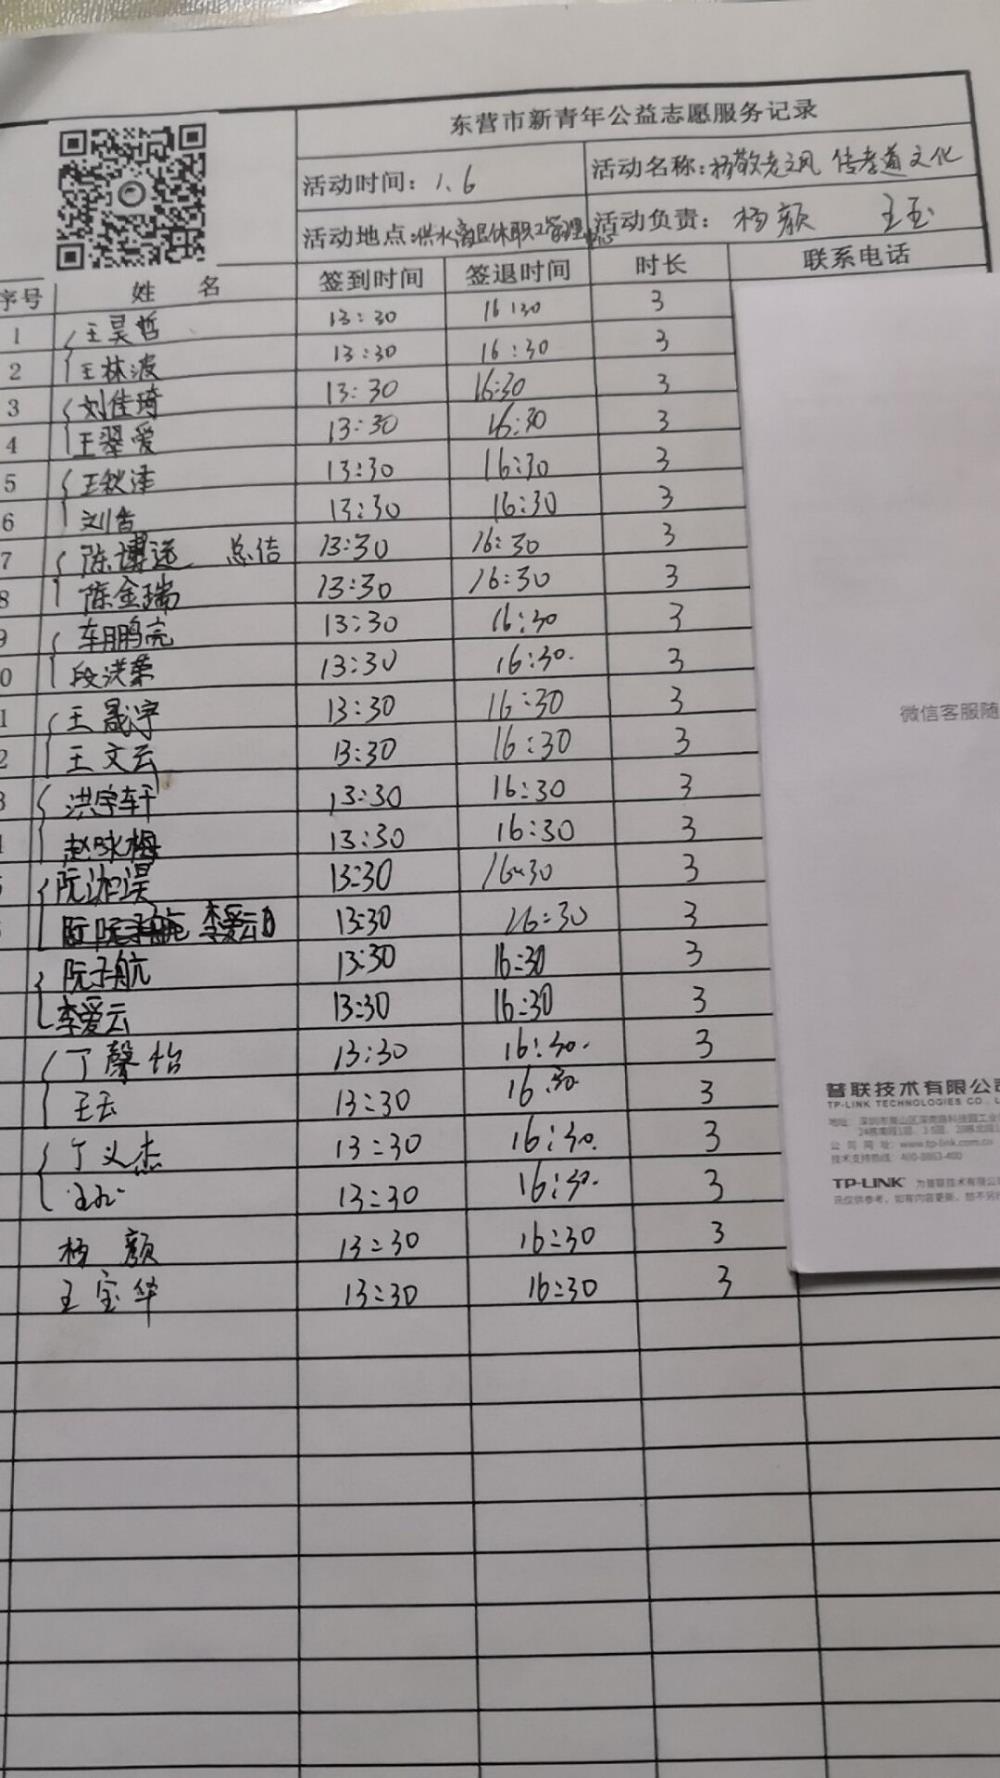 东营市新青年公益志愿服务记录
活动时间：1、6 活动名称：扬敬老之风 传孝道文化
活动地点：洪水离退休职工管理中心 活动负责： 杨颜 王玉
序号 姓 名 签到时间 签退时间 时长 联系电话
1 王昊哲 13:30 16:30 3
2 王林波 13:30 16:30 3
3 刘佳琦 13:30 16:30 3
4 王翠爱 13:30 16:30 3
5 王秋泽 13:30 16:30 3
6 刘杏 13:30 16:30 3
7 陈博远 总结 13:30 16:30 3
8 陈金瑞 13:30 16:30 3
9 车鹏亮 13:30 16:30. 3
0 段洪荣 13:30 16:30. 3
1 王晟宇 13:30 16:30 3
2 王文云 13:30 16:30 3
3 洪宇轩 13:30 16:30 3
赵咏梅 13:30 16:30 3
阮湘淏 13:30 16:30 3
李爱云 13:30 16:30 3
阮子航 13:30 16:30 3
李爱云 13:30 16:30 3
丁馨怡 13:30 16:30. 3
王玉 13:30 16:30 3
丁义杰 13:30 16:30. 3
13:30 16:30. 3
杨 颜 13:30 16:30 3
王宝华 13:30 16:30 3
微信客服随
普联技术有限公司
TP-LINK TECHNOLOGIES CO., L
公司网址：www.tp-link.com.cn
技术支持热线：400-8863-400
TP-LINK 为普联技术有限公